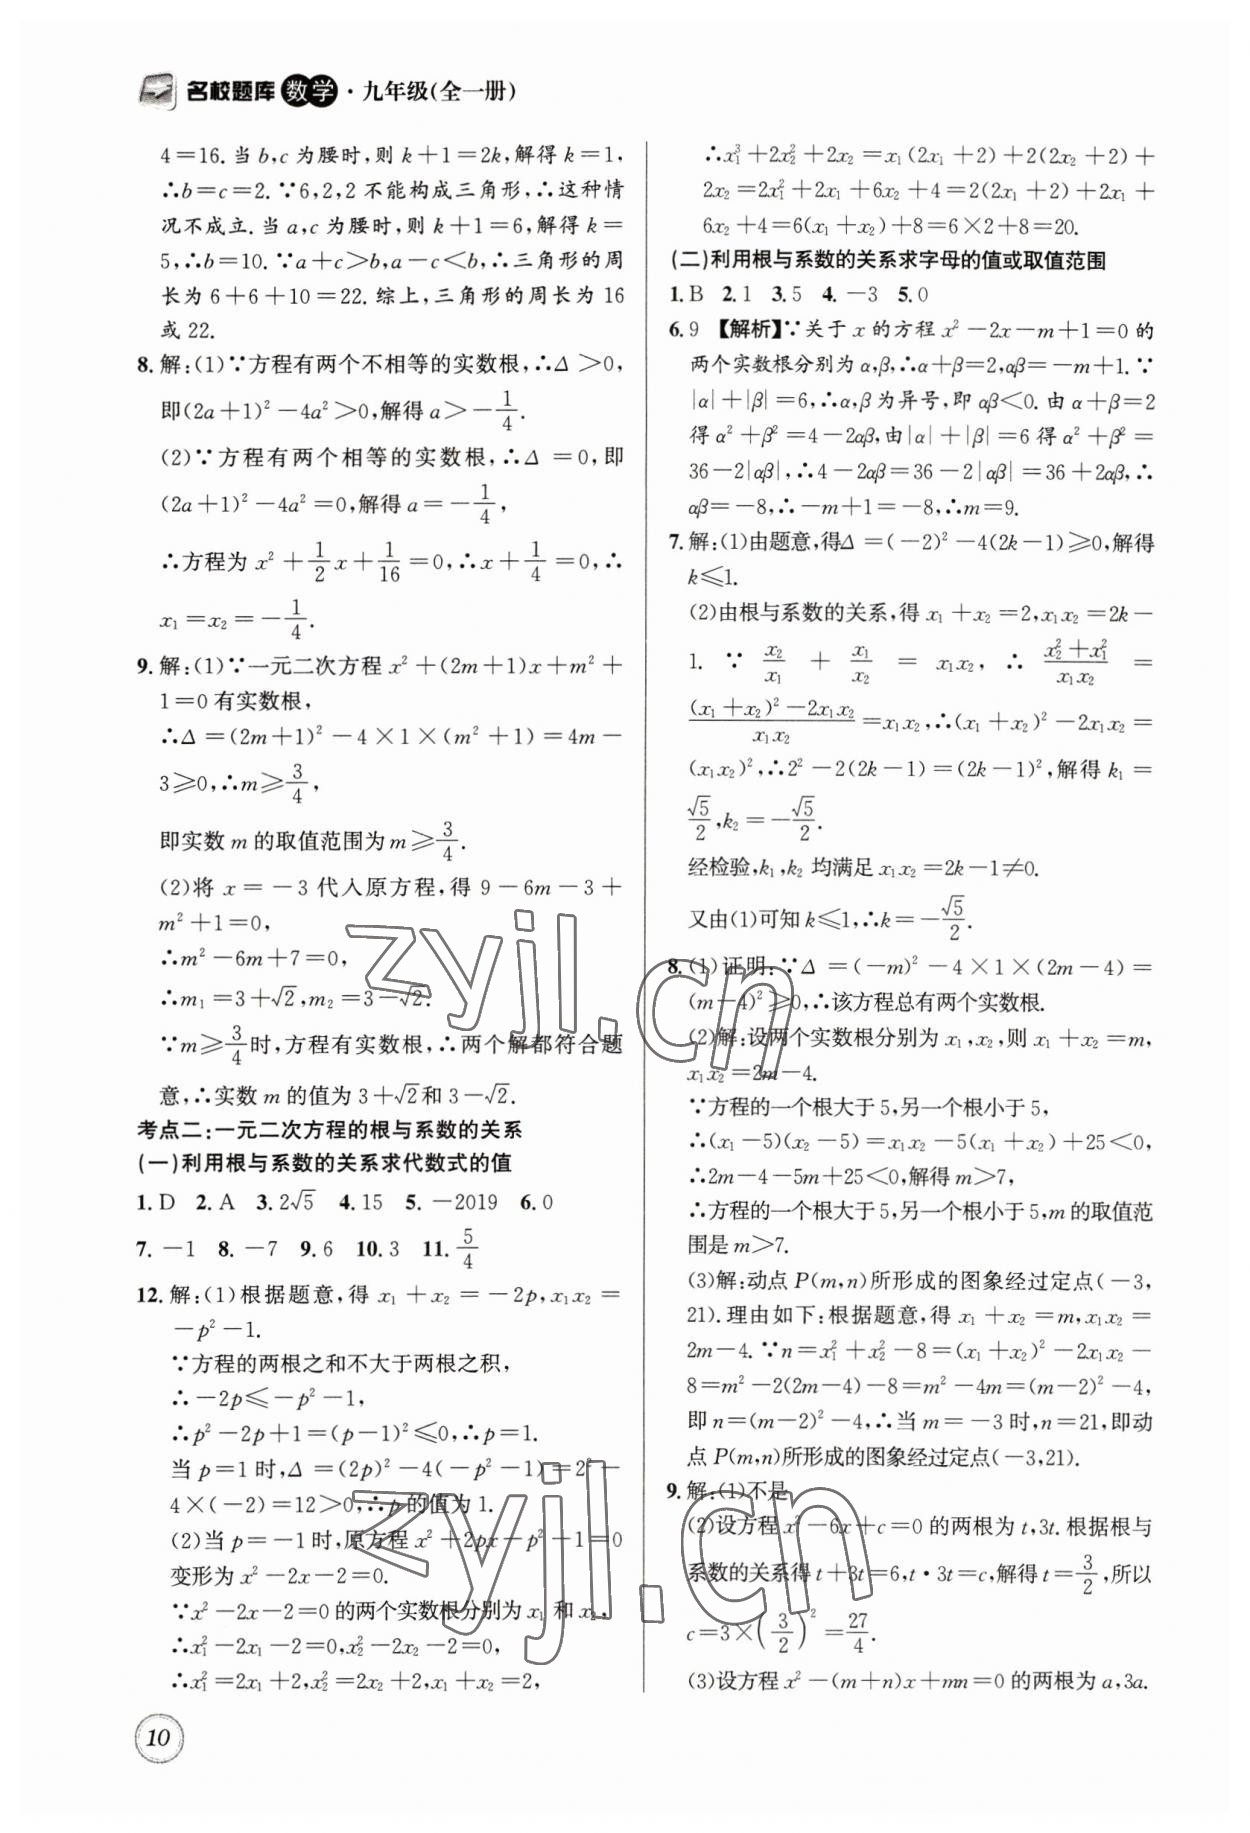 名校题库 数学·九年级(全一册)
4=16. 当 b,c 为腰时,则 k+1=2k,解得 k=1,
∴b=c=2. ∵6,2,2 不能构成三角形,∴这种情
况不成立. 当 a,c 为腰时,则 k+1=6,解得 k=
5,∴b=10. ∵a+c>b,a-c<b,∴三角形的周
长为 6+6+10=22. 综上,三角形的周长为 16
或 22.
8. 解:(1)∵方程有两个不相等的实数根,∴Δ>0,
即(2a+1)²-4a²>0,解得 a>-1/4.
(2)∵方程有两个相等的实数根,∴Δ=0,即
(2a+1)²-4a²=0,解得 a=-1/4,
∴方程为 x²+1/2x+1/16=0,∴x+1/4=0,∴
x₁=x₂=-1/4.
9. 解:(1)∵一元二次方程 x²+(2m+1)x+m²+
1=0 有实数根,
∴Δ=(2m+1)²-4×1×(m²+1)=4m-
3≥0,∴m≥3/4,
即实数 m 的取值范围为 m≥3/4.
(2)将 x=-3 代入原方程,得 9-6m-3+
m²+1=0,
∴m²-6m+7=0,
∴m₁=3+√2,m₂=3-√2.
∵m≥3/4时,方程有实数根,∴两个解都符合题
意,∴实数 m 的值为 3+√2和 3-√2.
考点二:一元二次方程的根与系数的关系
(一)利用根与系数的关系求代数式的值
1. D 2. A 3. 2√5 4. 15 5. -2019 6. 0
7. -1 8. -7 9. 6 10. 3 11. 5/4
12. 解:(1)根据题意,得 x₁+x₂=-2p,x₁x₂=
-p²-1.
∵方程的两根之和不大于两根之积,
∴-2p≤-p²-1,
∴p²-2p+1=(p-1)²≤0,∴p=1.
当 p=1 时,Δ=(2p)²-4(-p²-1)=2²-
4×(-2)=12>0,∴p的值为 1.
(2)当 p=-1 时,原方程 x²+2px-p²+1=0
变形为 x²-2x-2=0.
∵x²-2x-2=0 的两个实数根分别为 x₁ 和 x₂,
∴x₁²-2x₁-2=0,x₂²-2x₂-2=0,
∴x₁²=2x₁+2,x₂²=2x₂+2,x₁+x₂=2,
∴x₁³+2x₂²+2x₂=x₁(2x₁+2)+2(2x₂+2)+
2x₂=2x₁²+2x₁+6x₂+4=2(2x₁+2)+2x₁+
6x₂+4=6(x₁+x₂)+8=6×2+8=20.
(二)利用根与系数的关系求字母的值或取值范围
1. B 2. 1 3. 5 4. -3 5. 0
6. 9 【解析】∵关于 x 的方程 x²-2x-m+1=0 的
两个实数根分别为 α,β,∴α+β=2,αβ=-m+1. ∵
|α|+|β|=6,∴α,β 为异号,即 αβ<0. 由 α+β=2
得 α²+β²=4-2αβ,由|α|+|β|=6 得 α²+β²=
36-2|αβ|,∴4-2αβ=36-2|αβ|=36+2αβ,∴
αβ=-8,∴-m+1=-8,∴m=9.
7. 解:(1)由题意,得Δ=(-2)²-4(2k-1)≥0,解得
k≤1.
(2)由根与系数的关系,得 x₁+x₂=2,x₁x₂=2k-
1. ∵ x₂/x₁ + x₁/x₂ = x₁x₂, ∴ (x₂²+x₁²)/(x₁x₂) =
((x₁+x₂)²-2x₁x₂)/(x₁x₂)=x₁x₂,∴(x₁+x₂)²-2x₁x₂=
(x₁x₂)²,∴2²-2(2k-1)=(2k-1)²,解得 k₁=
√5/2,k₂=-√5/2.
经检验,k₁,k₂ 均满足 x₁x₂=2k-1≠0.
又由(1)可知 k≤1,∴k=-√5/2.
8. (1)证明:∵Δ=(-m)²-4×1×(2m-4)=
(m-4)²≥0,∴该方程总有两个实数根.
(2)解:设两个实数根分别为 x₁,x₂,则 x₁+x₂=m,
x₁x₂=2m-4.
∵方程的一个根大于 5,另一个根小于 5,
∴(x₁-5)(x₂-5)=x₁x₂-5(x₁+x₂)+25<0,
∴2m-4-5m+25<0,解得 m>7,
∴方程的一个根大于 5,另一个根小于 5,m 的取值范
围是 m>7.
(3)解:动点 P(m,n)所形成的图象经过定点(-3,
21). 理由如下:根据题意,得 x₁+x₂=m,x₁x₂=
2m-4. ∵n=x₁²+x₂²-8=(x₁+x₂)²-2x₁x₂-
8=m²-2(2m-4)-8=m²-4m=(m-2)²-4,
即 n=(m-2)²-4,∴当 m=-3 时,n=21,即动
点 P(m,n)所形成的图象经过定点(-3,21).
9. 解:(1)不是
(2)设方程 x²-6x+c=0 的两根为 t,3t. 根据根与
系数的关系得 t+3t=6,t·3t=c,解得 t=3/2,所以
c=3×(3/2)²=27/4.
(3)设方程 x²-(m+n)x+mn=0 的两根为 a,3a.
zyjl.cn
zyjl.cn
10